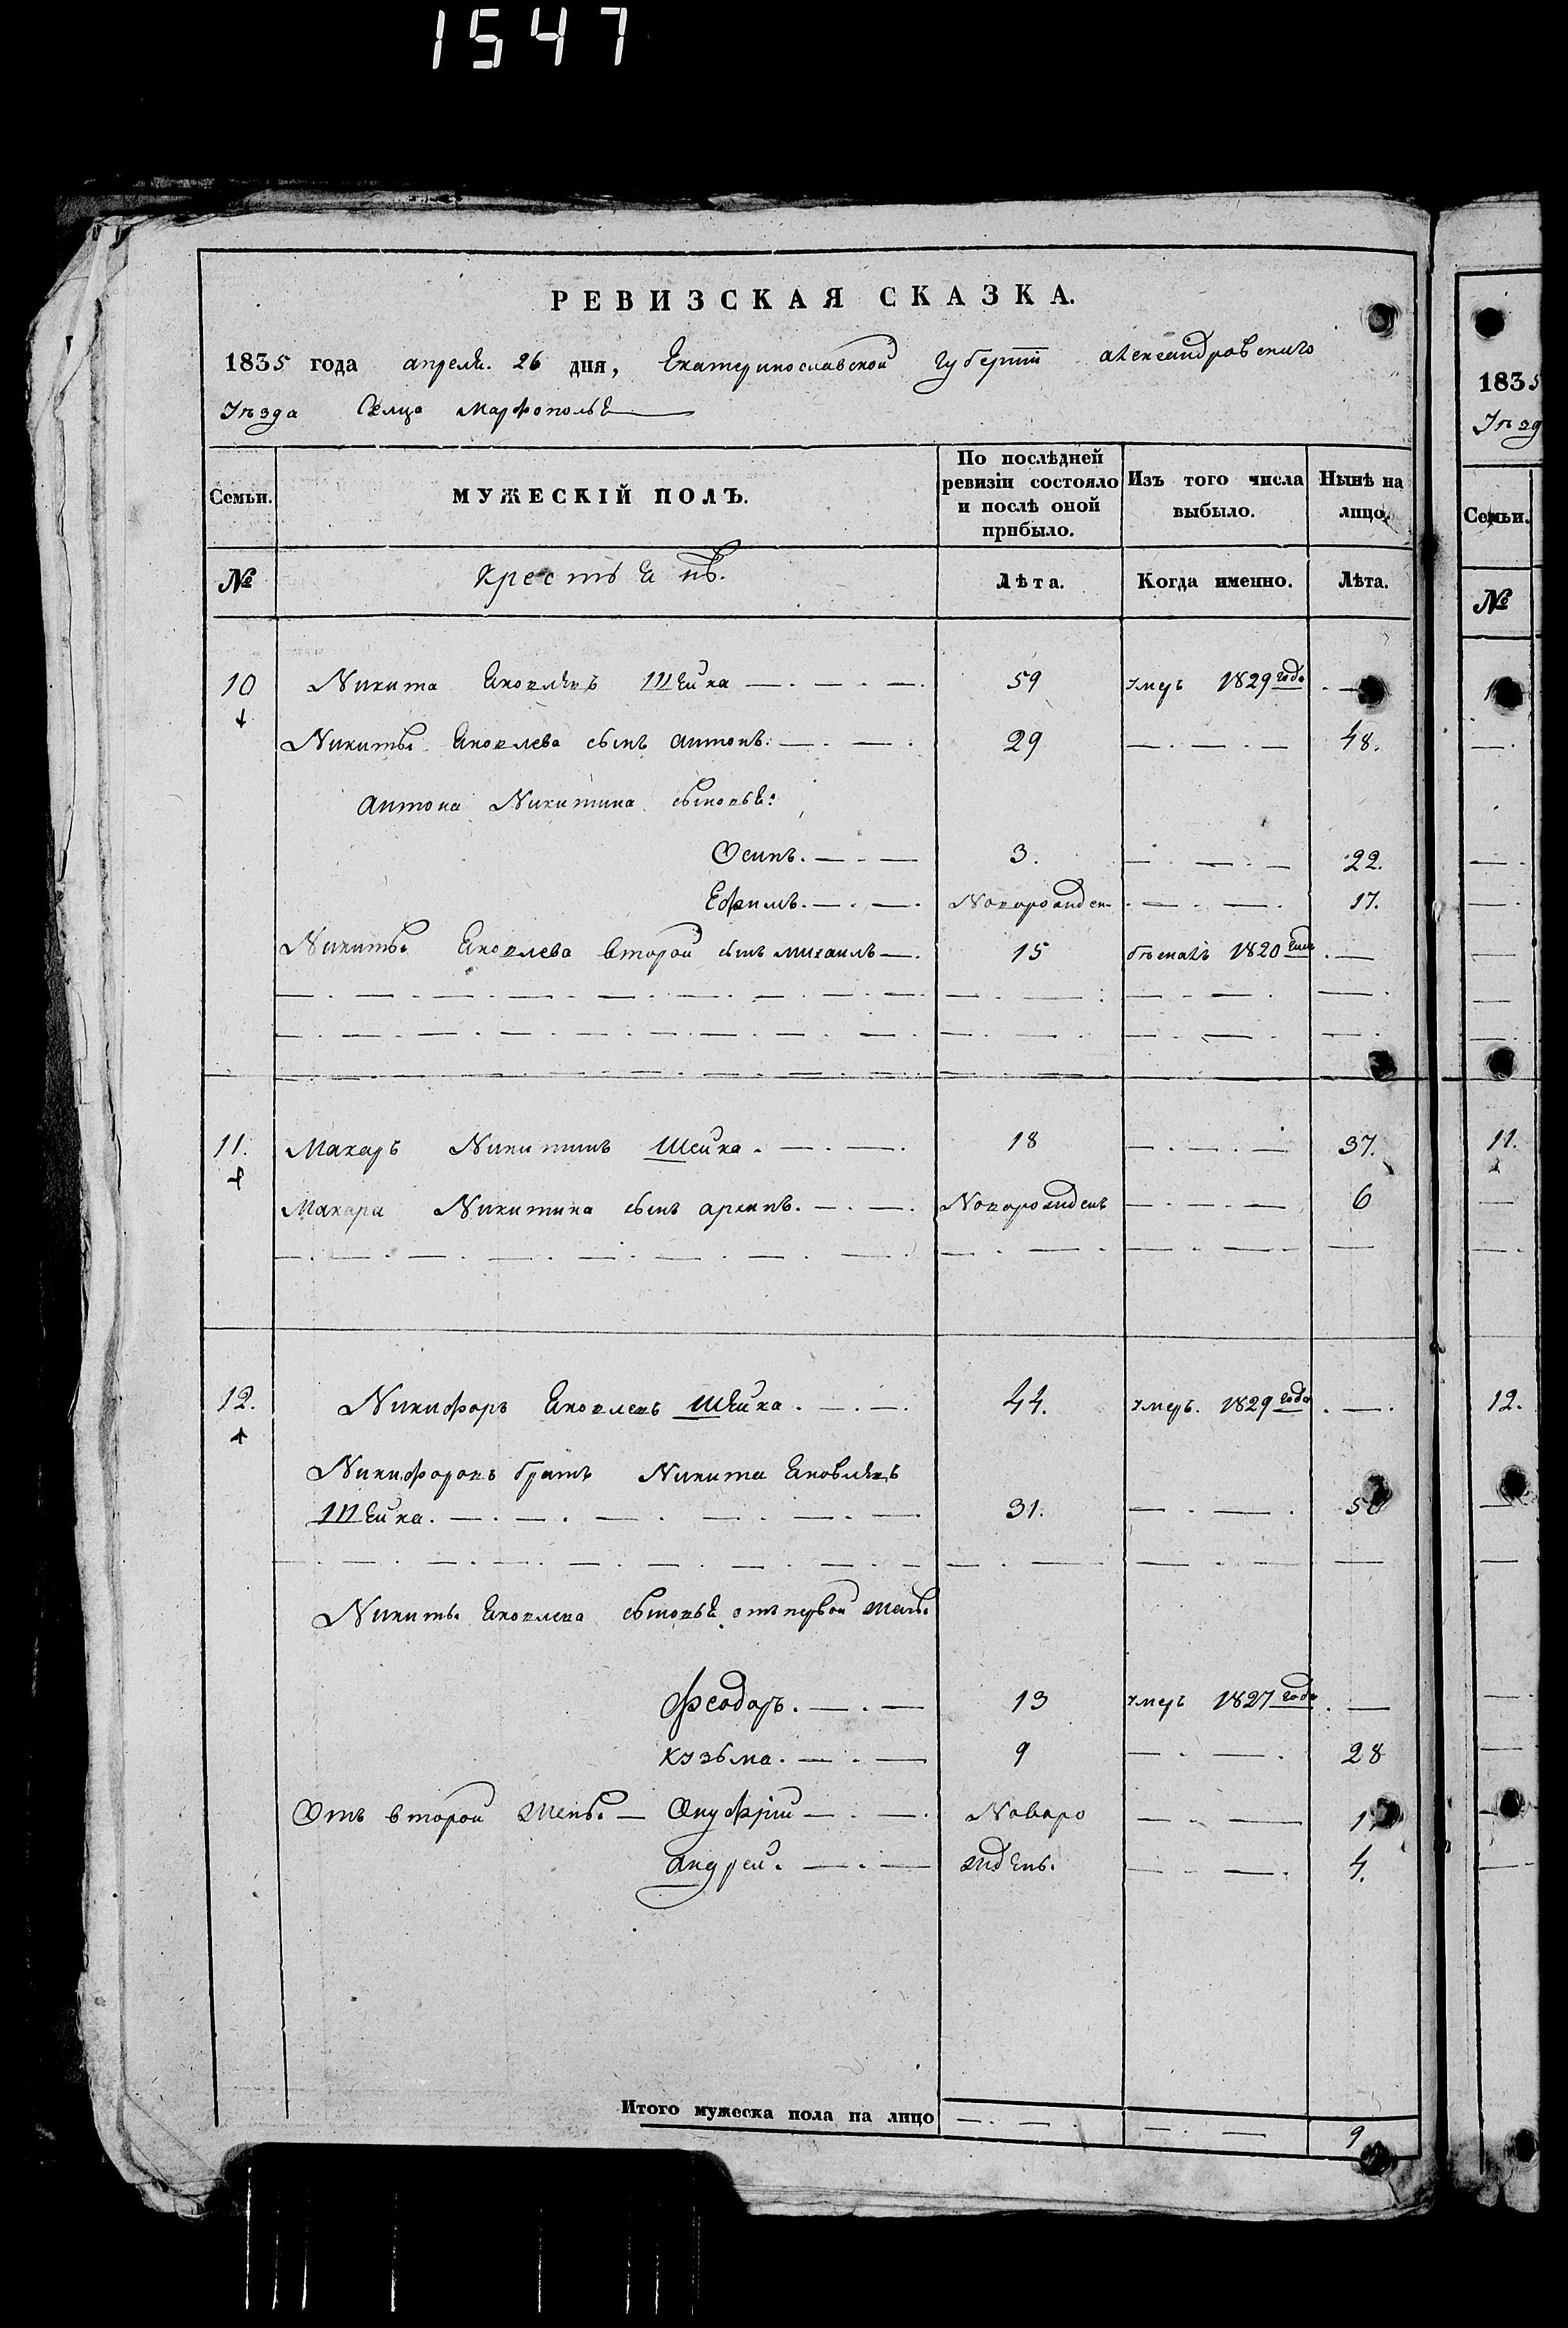 1547
РЕВИЗСКАЯ СКАЗКА.
1835 года апреля. 26 дня, Екатеринославской губернии александровского
Уезда Селцо Марфополье
Семьи. МУЖЕСКІЙ ПОЛЪ. По послѣдней ревизіи состояло и послѣ оной прибыло. Изъ того числа выбыло. Нынѣ на лицо.
№ Крестьянъ. Лѣта. Когда именно. Лѣта.
10 Никита Яковлевъ Шейка — . — . — . 59 умеръ 1829 года . —
Никиты Яковлева сынъ антонъ. — . — . 29 — . — . — 48.
антона Никитина сыновья:
Осипъ. — . — 3. — . — . — 22.
Ефимъ. — . — . Новорожден. — . — . 17.
Никиты Яковлева второй сынъ михаилъ — . 15 1820 . —
11. Макаръ Никитинъ Шейка . — . — . 18 — . — . — 37.
Макара Никитина сынъ архипъ. — . — . Новорожденъ — . — . — 6
12. Никифоръ Яковлевъ Шейка . — . — . 44. умеръ. 1829 года . — .
Никифоровъ братъ Никита Яковлевъ
Шейка. — . — . — . — . — . — 31. — . — .
Никиты Яковлева сыновья отъ первой жены
Феодоръ. — . — 13 умеръ 1827 года . —
Кузьма. — . — 9 — . — . 28
Отъ второй жены — Онуфрій — . — . Новоро — . —
андрей. — . — жденъ. — . — . 4.
Итого мужеска пола на лицо — . — . — . — 9
1835
Уезд
Семьи.
№
11.
12.